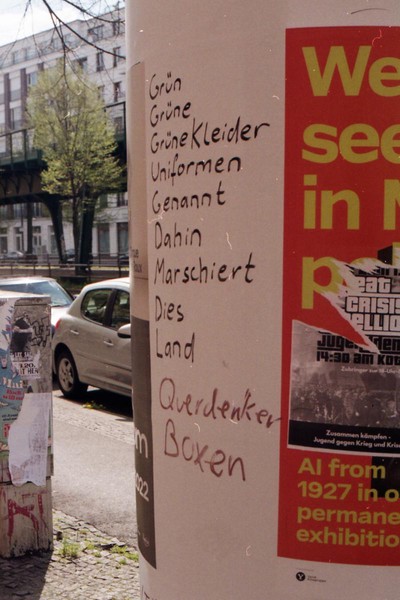 Grün
Grüne
GrüneKleider
Uniformen
Genannt
Dahin
Marschiert
Dies
Land
Querdenker
Boxen
We
see
in
eat
CRISIS
14:30 am
Zusammen kämpfen -
Jugend gegen Krieg und
AI from
1927 in
permane
exhibitio